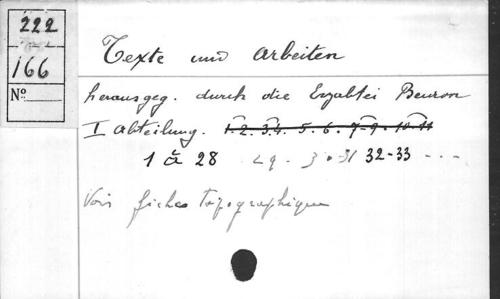 222
166
No
Texte und Arbeiten
herausgeg. durch die Erzabtei Beuron
I Abteilung. 1-2. 3.4. 5. 6. 7-9. 10-11
1 à 28 29. 30-31 32-33 - - -
Voir fiches topographiques